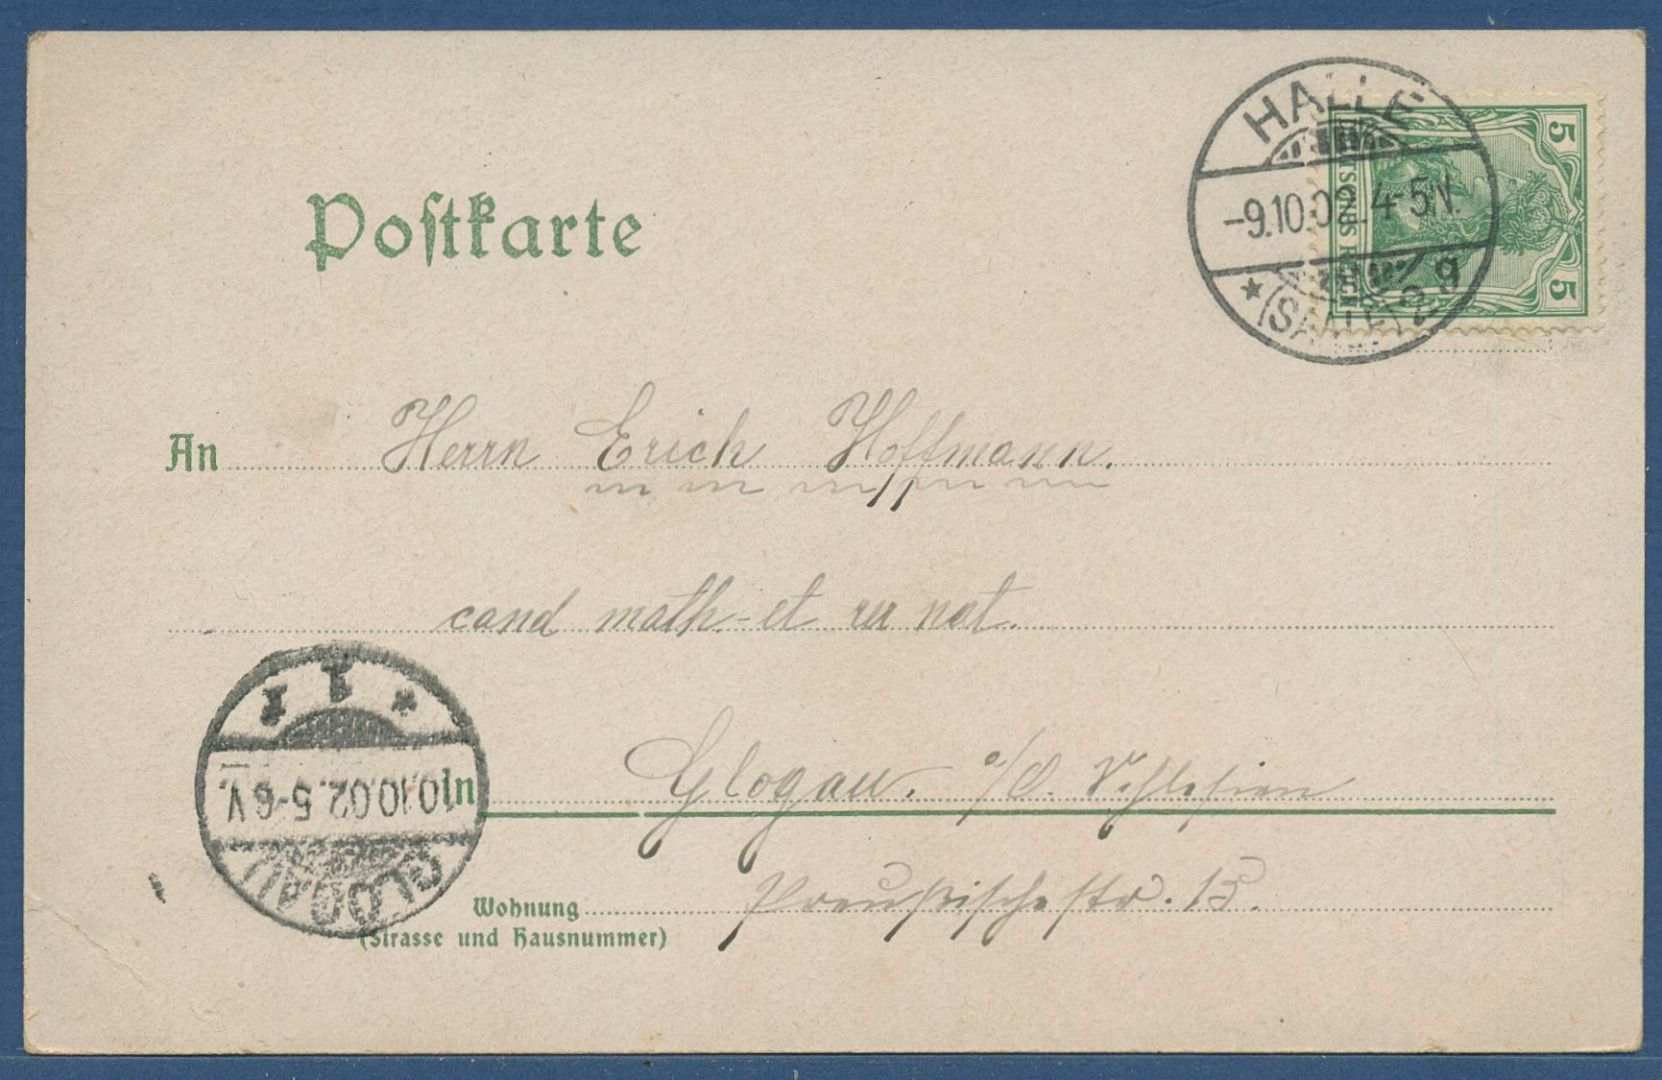 HALLE
-9.10.02. 4-5N.
* (SAALE) 2 g
5
5
Postkarte
An Herrn Erich Hoffmann.
cand math-et rer nat.
* 1 *
In Glogau. a/O. Schlesien
10.10.02. 5-6V.
GLOGAU
Wohnung Preußischestr. 13.
(Strasse und Hausnummer)